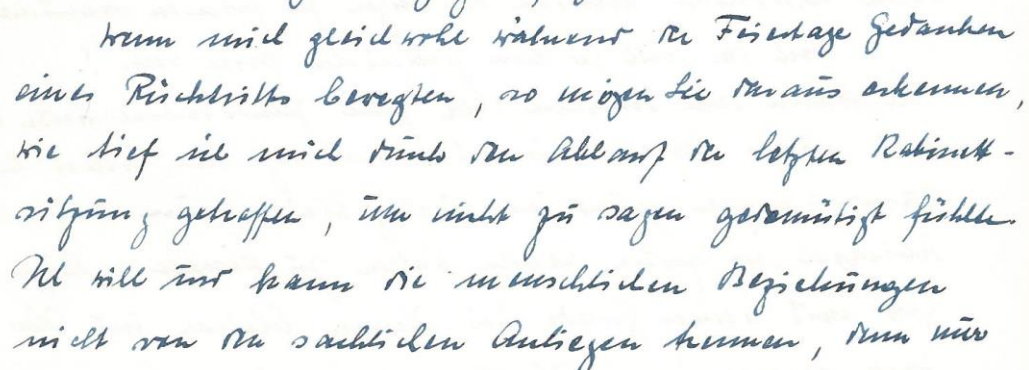 Wenn mich gleichwohl während der Feiertage Gedanken
eines Rücktritts bewegten, so mögen Sie daraus erkennen,
wie tief ich mich durch den Ablauf der letzten Kabinett-
sitzung getroffen, um nicht zu sagen gedemütigt fühlte.
Ich will und kann die menschlichen Beziehungen
nicht von den sachlichen Anliegen trennen, denn nur